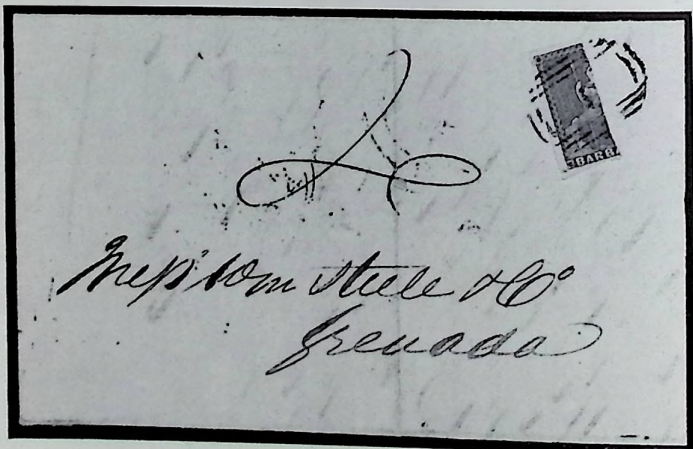 BARB
Mess Wm Steele & Co
Grenada